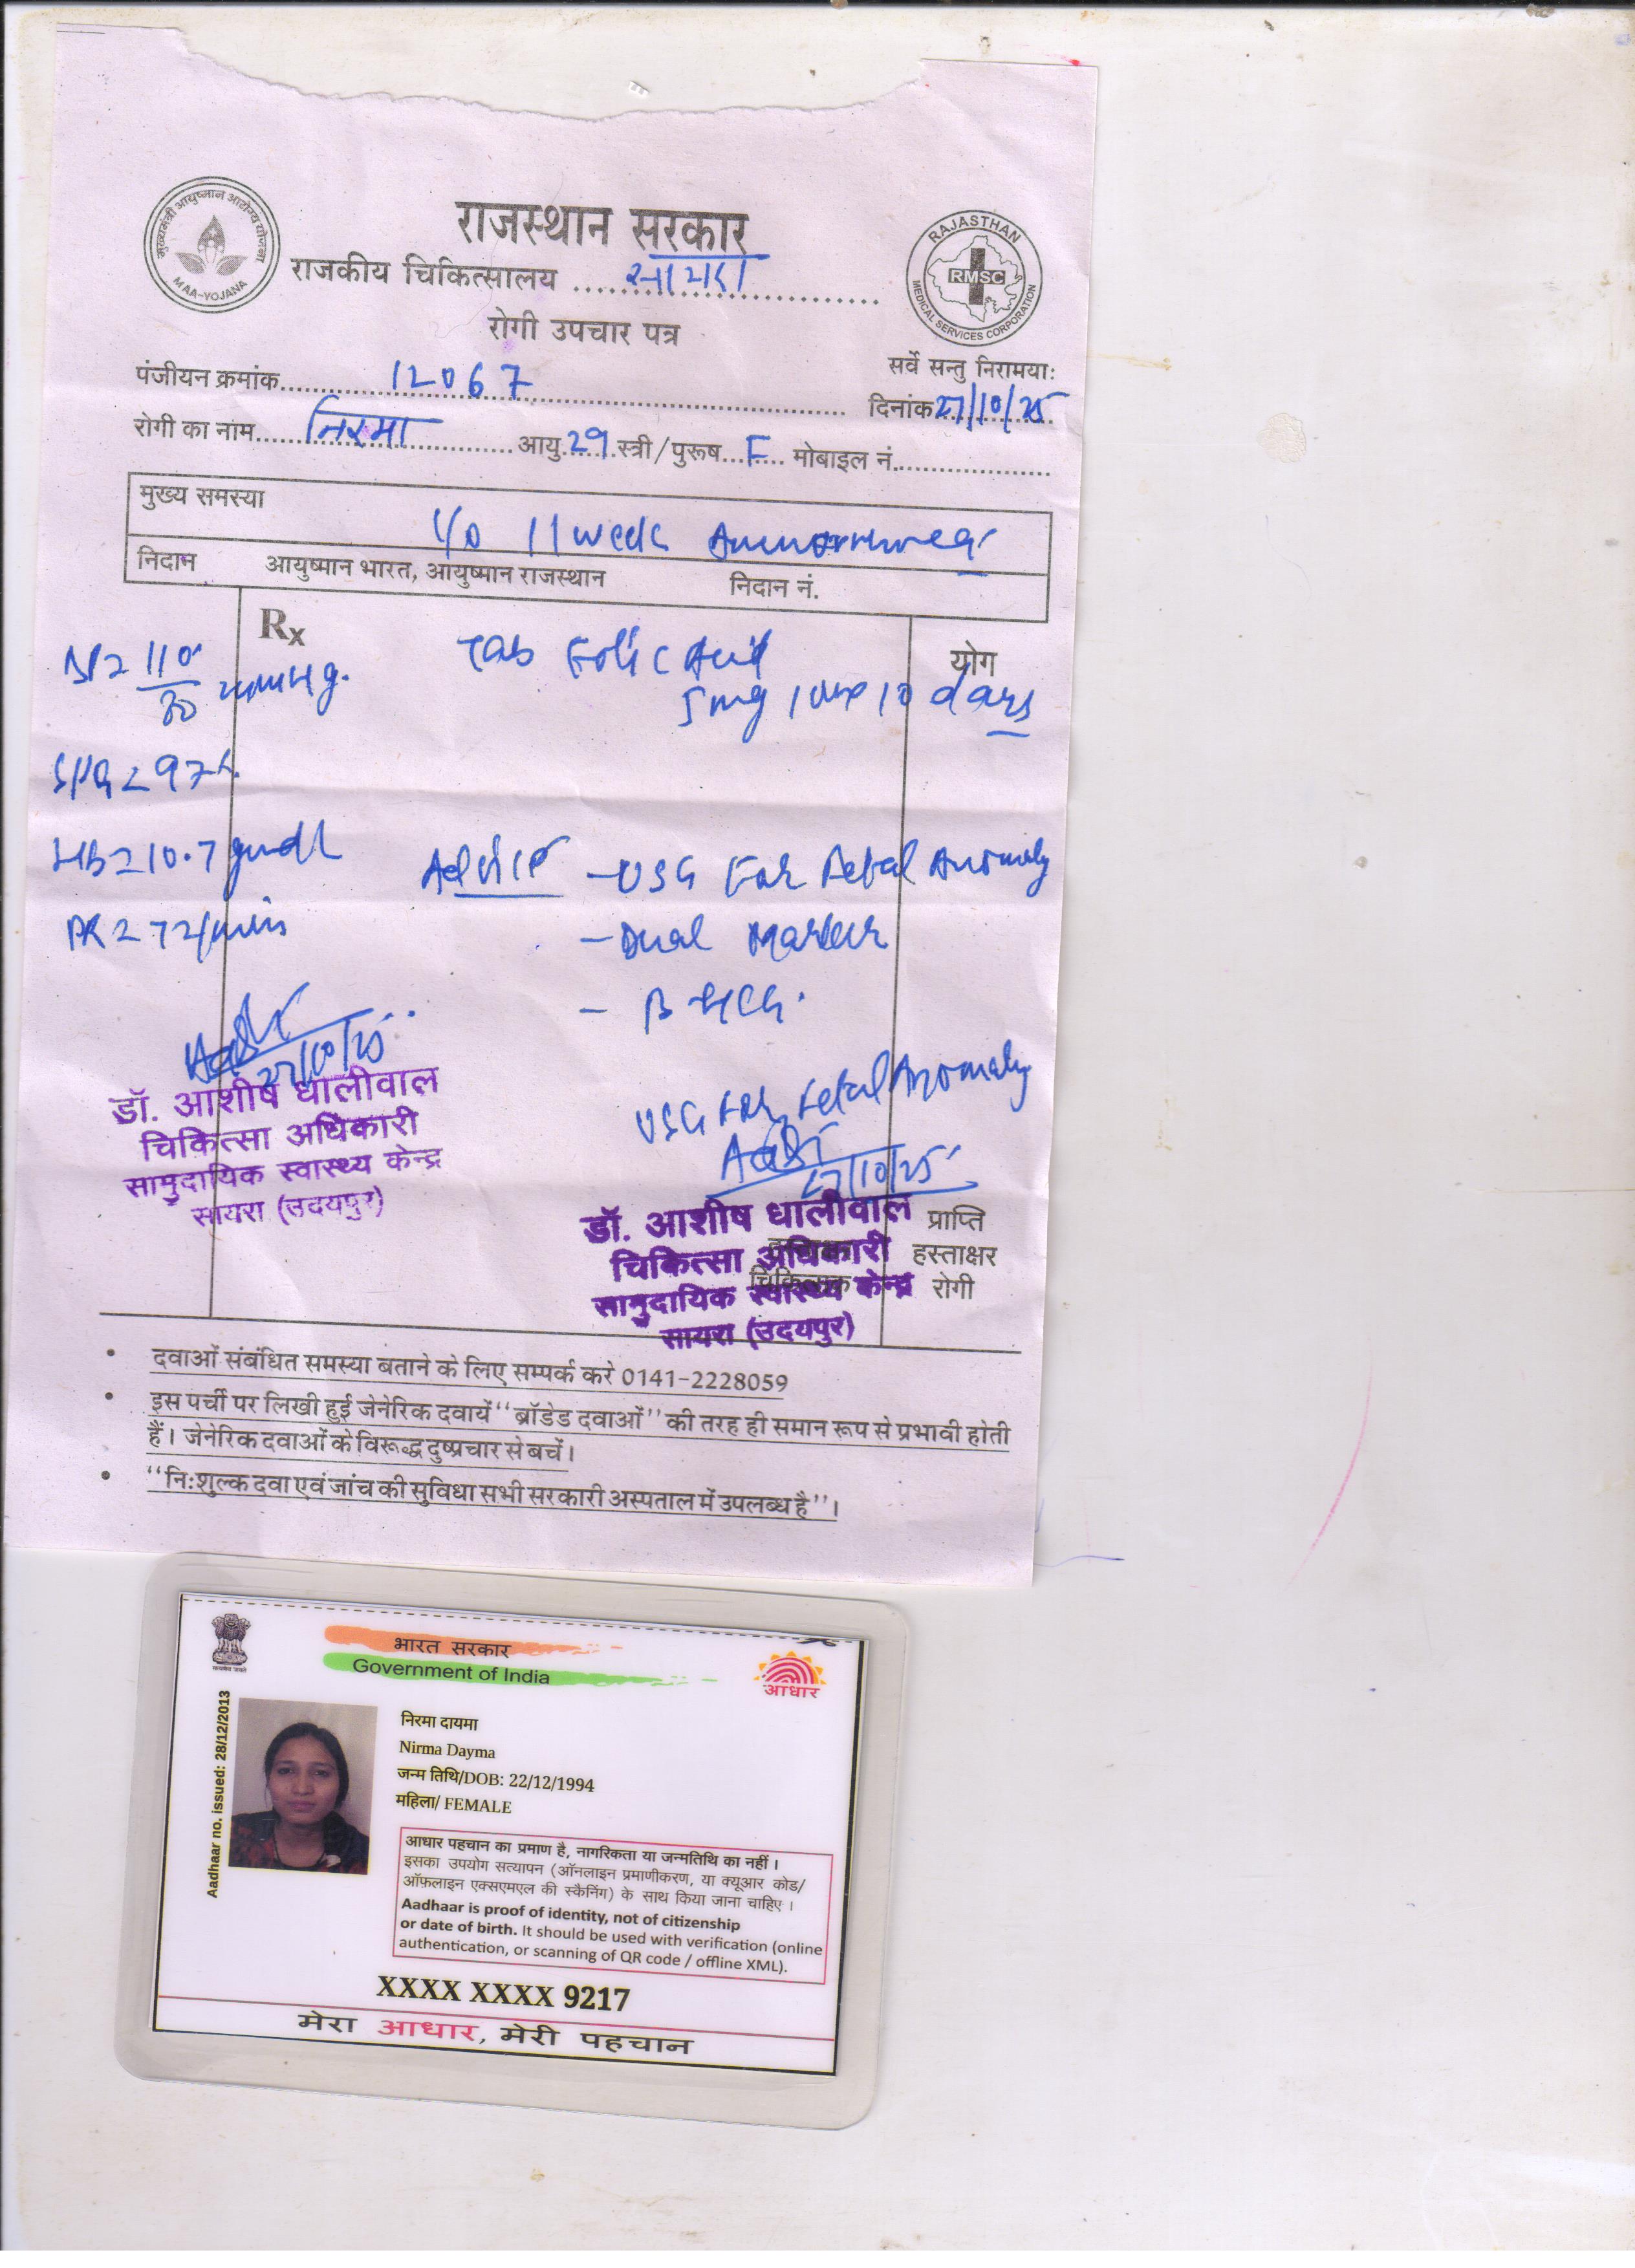 मुख्यमंत्री आयुष्मान आरोग्य योजना
MAA-YOJANA
राजस्थान सरकार
राजकीय चिकित्सालय ........ सायरा
RAJASTHAN
RMSC
MEDICAL SERVICES CORPORATION
रोगी उपचार पत्र
सर्वे सन्तु निरामयाः
पंजीयन क्रमांक........ 12067
दिनांक 27/10/25
रोगी का नाम..... निरमा ..... आयु 29 स्त्री/पुरूष... F .... मोबाइल नं.
मुख्य समस्या
11 week
निदान आयुष्मान भारत, आयुष्मान राजस्थान निदान नं.
Rx
योग
Tab Folic Acid
5mg 1 10 days
110
80 mmHg.
97%
HB = 10.7 gm/dl
PR = 72/min
Advice - USG For Fetal Anomaly
- Dual Marker
- B HCG.
27/10/25
डॉ. आशीष धालीवाल
चिकित्सा अधिकारी
सामुदायिक स्वास्थ्य केन्द्र
सायरा (उदयपुर)
USG For Fetal Anomaly
27/10/25
डॉ. आशीष धालीवाल
चिकित्सा अधिकारी
सामुदायिक स्वास्थ्य केन्द्र
सायरा (उदयपुर)
प्राप्ति
हस्ताक्षर
रोगी
चिकित्सक
• दवाओं संबंधित समस्या बताने के लिए सम्पर्क करे 0141-2228059
• इस पर्ची पर लिखी हुई जेनेरिक दवायें "ब्रॉडेड दवाओं" की तरह ही समान रूप से प्रभावी होती
हैं। जेनेरिक दवाओं के विरूद्ध दुष्प्रचार से बचें।
• "निःशुल्क दवा एवं जांच की सुविधा सभी सरकारी अस्पताल में उपलब्ध है"।
भारत सरकार
Government of India
आधार
Aadhaar no. issued: 28/12/2013
निरमा दायमा
Nirma Dayma
जन्म तिथि/DOB: 22/12/1994
महिला/ FEMALE
आधार पहचान का प्रमाण है, नागरिकता या जन्मतिथि का नहीं ।
इसका उपयोग सत्यापन (ऑनलाइन प्रमाणीकरण, या क्यूआर कोड/
ऑफ़लाइन एक्सएमएल की स्कैनिंग) के साथ किया जाना चाहिए ।
Aadhaar is proof of identity, not of citizenship
or date of birth. It should be used with verification (online
authentication, or scanning of QR code / offline XML).
XXXX XXXX 9217
मेरा आधार, मेरी पहचान